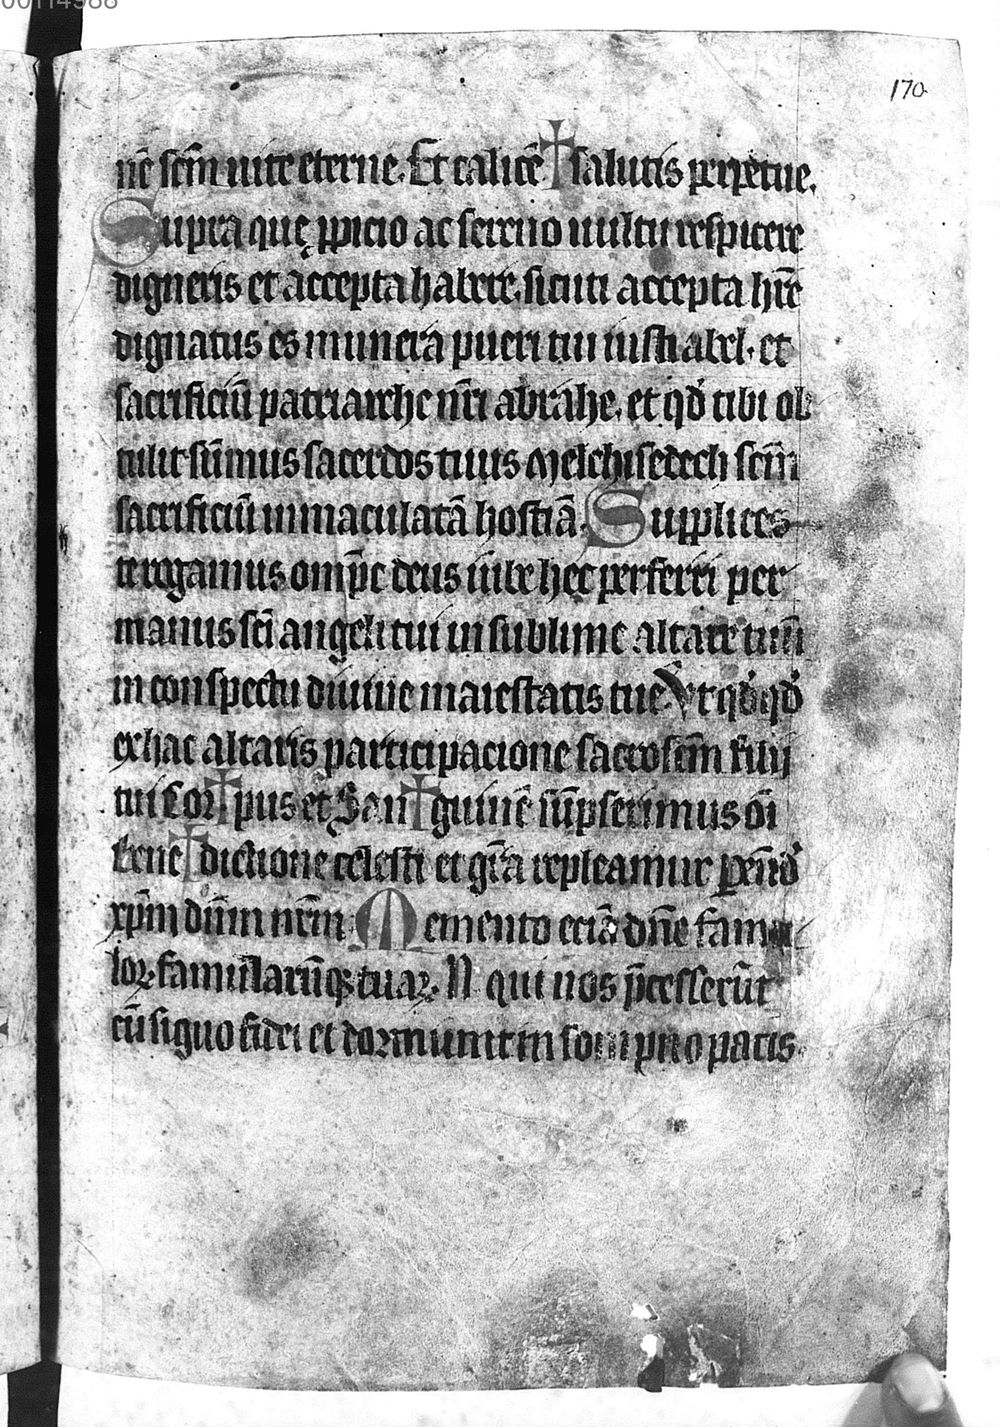 00114988
170
nē scm̄ uite eterne. Et calicē ✝ salutis perpetue.
Supra quę ꝓpicio ac sereno uultu respicere
digneris et accepta habere. sicuti accepta hr̄e
dignatus es munera pueri tui iusti abel. et
sacrificiū patriarche nr̄i abrahe. et qd̄ tibi ob
tulit sūmus sacerdos tuus Melchisedech scm̄
sacrificiū immaculatā hostiā. Supplices
te rogamus omp̄c deus iube hec perferri per
manus sc̄i angeli tui in sublime altare tuū
in conspectu diuine maiestatis tue. Vt qd̄qd̄
ex hac altaris participacione sacrosc̄m filij
tui Cor ✝ pus et San ✝ guinē sūpserimus ōi
bene ✝ dictione celesti et gr̄a repleamur ꝑ eūd̄
xp̄m dūm nr̄m. Memento eciā dn̄e famu
loꝝ famularūqꝫ tuaꝝ. N. qui nos p̄cesserūt
cū signo fidei et dormiunt in sompno pacis